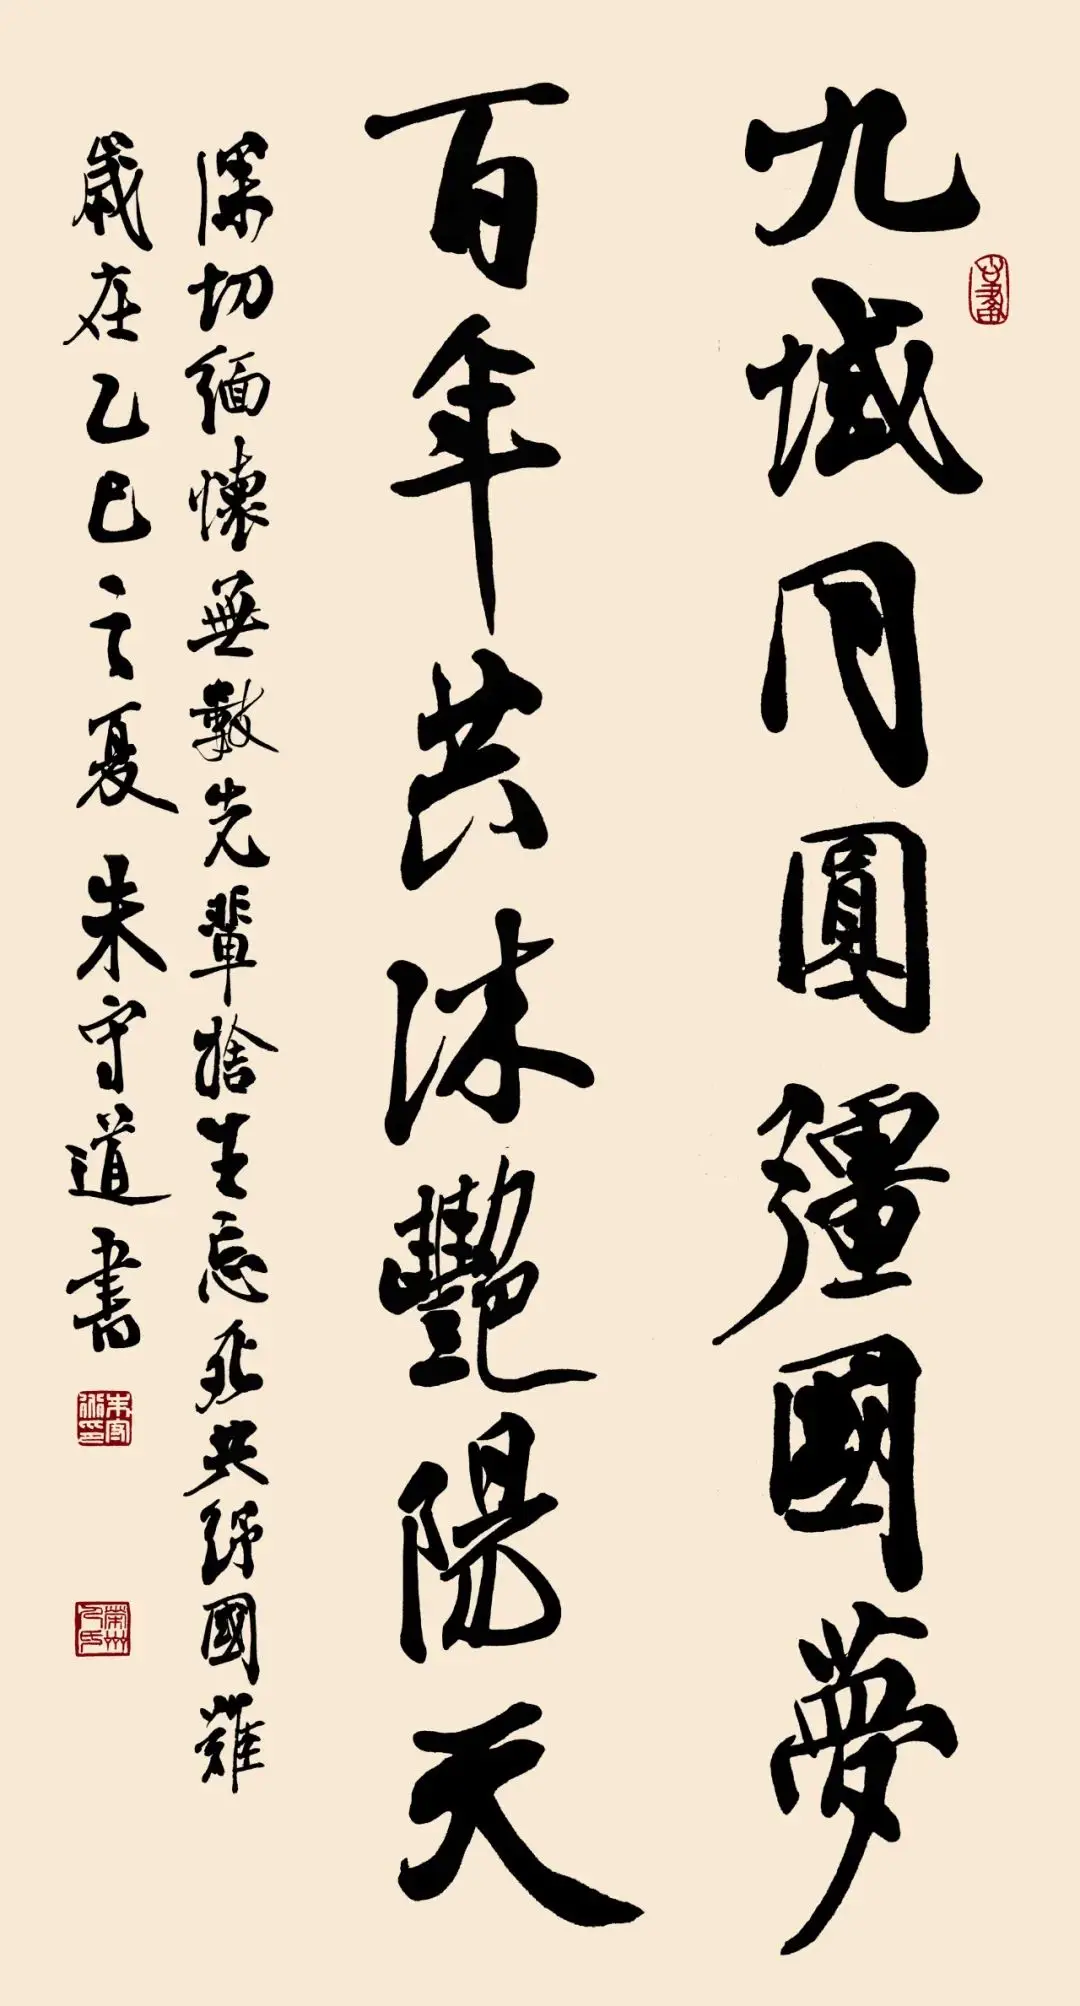 九域同圓彊國夢
百年共沐艷陽天
深切緬懷無數先輩捨生忘死共紓國難
歲在乙巳之夏 朱守道書
朱守道印